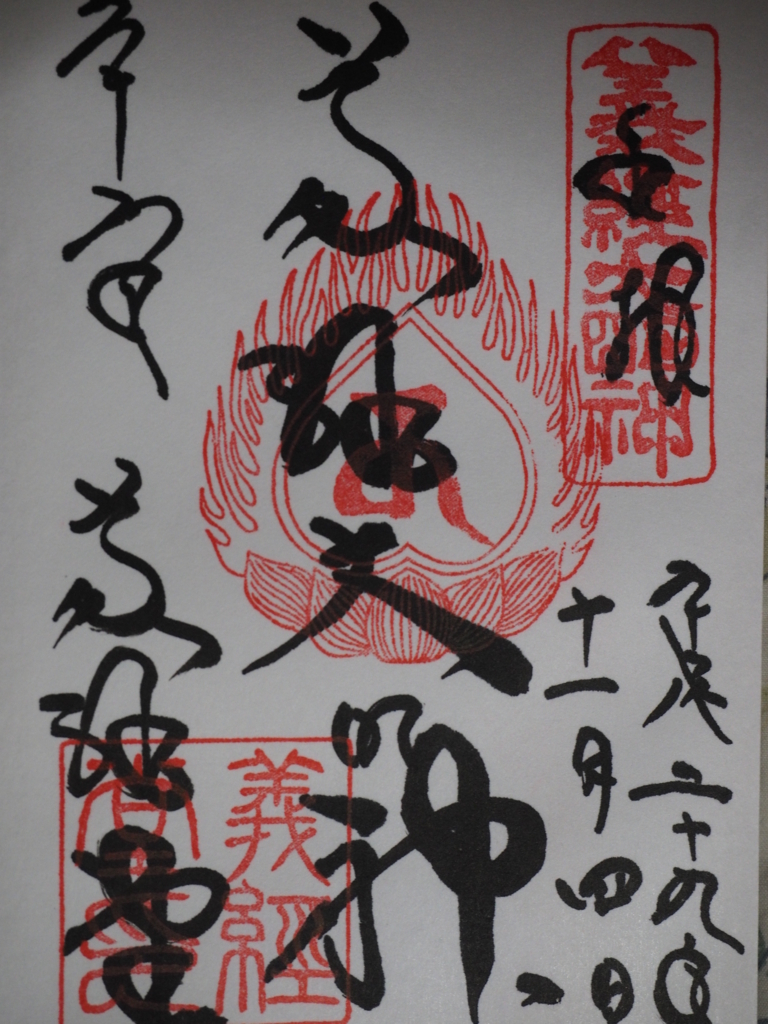 義經大明神
奉拝
平成二十九年
十一月四日
義経大明神
平泉 義経堂
義經